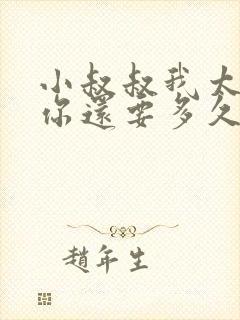 小叔叔我大
你還要多久
趙年生